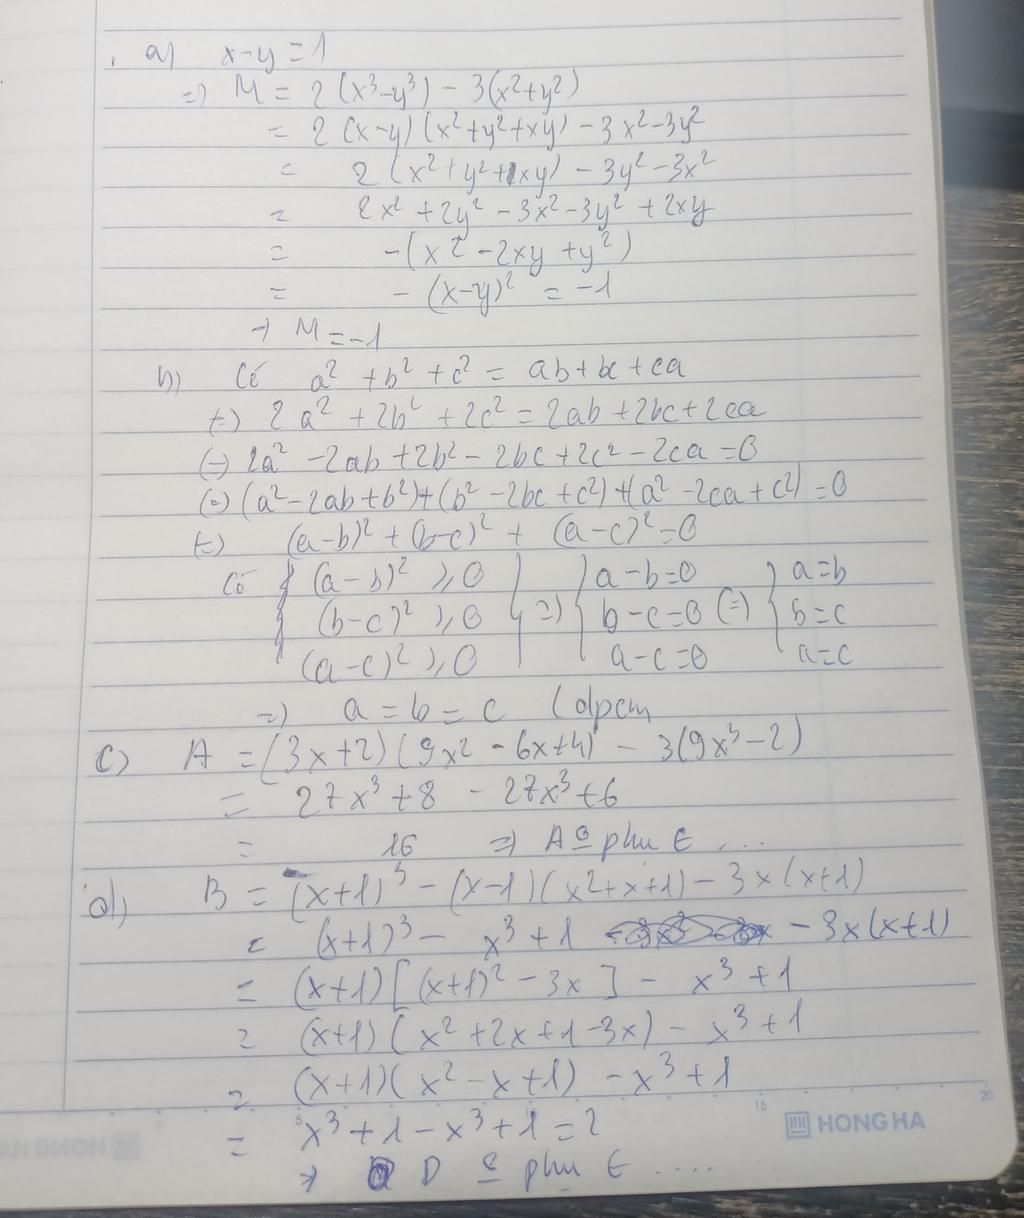 a) x-y=1
=> M = 2(x³-y³) - 3(x²+y²)
= 2(x-y)(x²+y²+xy) - 3x²-3y²
= 2(x²+y²+xy) - 3y²-3x²
= 2x²+2y²-3x²-3y²+2xy
= -(x²-2xy+y²)
= -(x-y)² = -1
-> M=-1
b) Có a²+b²+c² = ab+bc+ca
(=) 2a²+2b²+2c²=2ab+2bc+2ca
(=) 2a²-2ab+2b²-2bc+2c²-2ca=0
(=) (a²-2ab+b²)+(b²-2bc+c²)+(a²-2ca+c²)=0
(=) (a-b)²+(b-c)²+(a-c)²=0
Có { (a-b)² ≥ 0 } => { a-b=0 (=) { a=b
(b-c)² ≥ 0 b-c=0 b=c
(a-c)² ≥ 0 a-c=0 a=c
=) a=b=c (đpcm
c) A = (3x+2)(9x²-6x+4) - 3(9x³-2)
= 27x³+8 - 27x³+6
= 16 => A phụ ∈ ...
d) B = (x+1)³-(x-1)(x²+x+1)-3x(x+1)
= (x+1)³- x³+1 - 3x(x+1)
= (x+1)[(x+1)²-3x] - x³+1
= (x+1)(x²+2x+1-3x) - x³+1
= (x+1)(x²-x+1) - x³+1
= x³+1-x³+1=2
=> D phụ ∈ ....
5 15 20
HH HONG HA